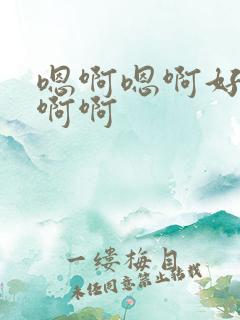 嗯啊嗯啊好
啊啊
一缕梅自
未经同意禁止转载